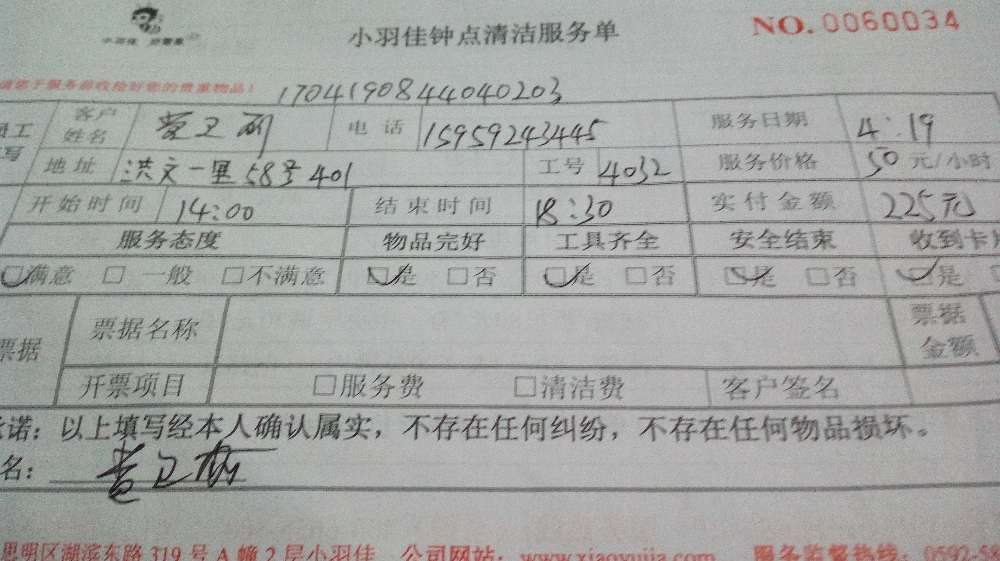 小羽佳 好管家
小羽佳钟点清洁服务单
NO. 0060034
请您于服务前收拾好您的贵重物品！
17041908440402​03
员工 填写 客户姓名 电话 15959243445 服务日期 4:19
地址 洪文一里58号401 工号 4032 服务价格 50 元/小时
开始时间 14:00 结束时间 18:30 实付金额 225元
服务态度 物品完好 工具齐全 安全结束 收到卡片
☑满意 □一般 □不满意 ☑是 □否 ☑是 □否 ☑是 □否 ☑是
票据 票据名称 票据金额
开票项目 □服务费 □清洁费 客户签名
承诺：以上填写经本人确认属实，不存在任何纠纷，不存在任何物品损坏。
名：
思明区湖滨东路319号A幢2层小羽佳 公司网站：www.xiaoyujia.com 服务监督热线：0592-58